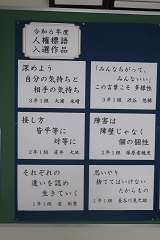 令和6年度
人権標語
入選作品
深めよう
自分の気持ちと
相手の気持ち
3年1組
「みんなちがって、
みんないい」
この言葉こそ 多様性
3年1組
接し方
皆平等に
対等に
2年1組
障害は
障壁じゃなく
個の個性
それぞれの
違いを認め
生きていく
1年1組
思いやり
捨ててはいけない
たからもの